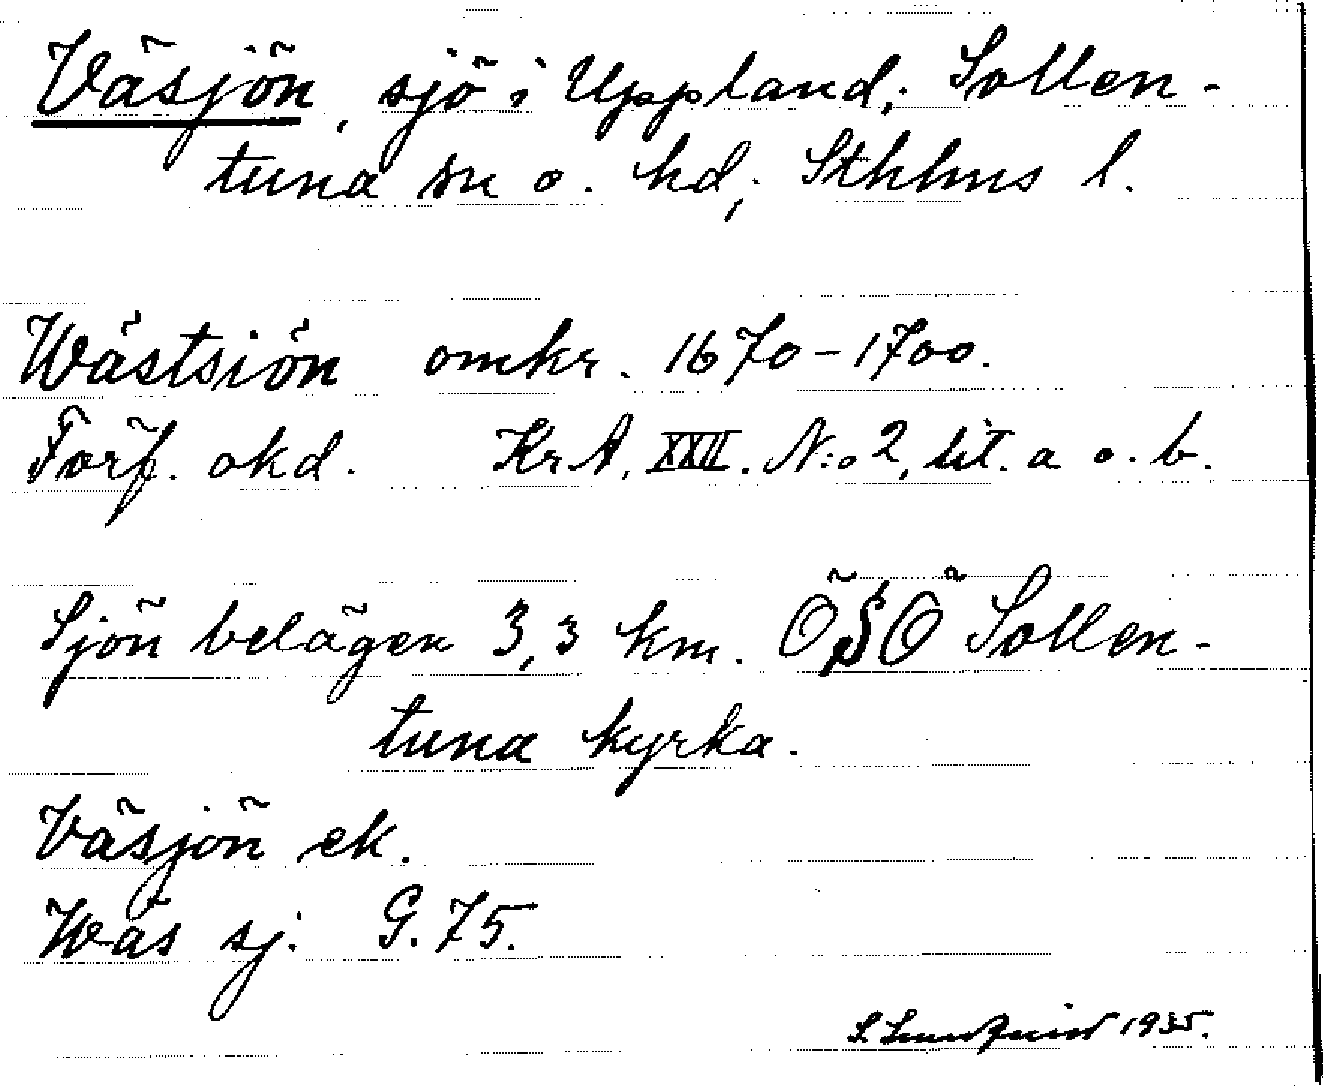 Väsjön, sjö i Uppland, Sollen-
tuna sn o. hd, Sthlms l.
Wästsiön omkr. 1670-1700.
Förf. okd. Kr A. XXII. N:o 2, lit. a o. b.
Sjön belägen 3,3 km. ÖSÖ Sollen-
tuna kyrka.
Väsjön ek.
Wäs sj. G. 75.
S. Lundquist 1935.